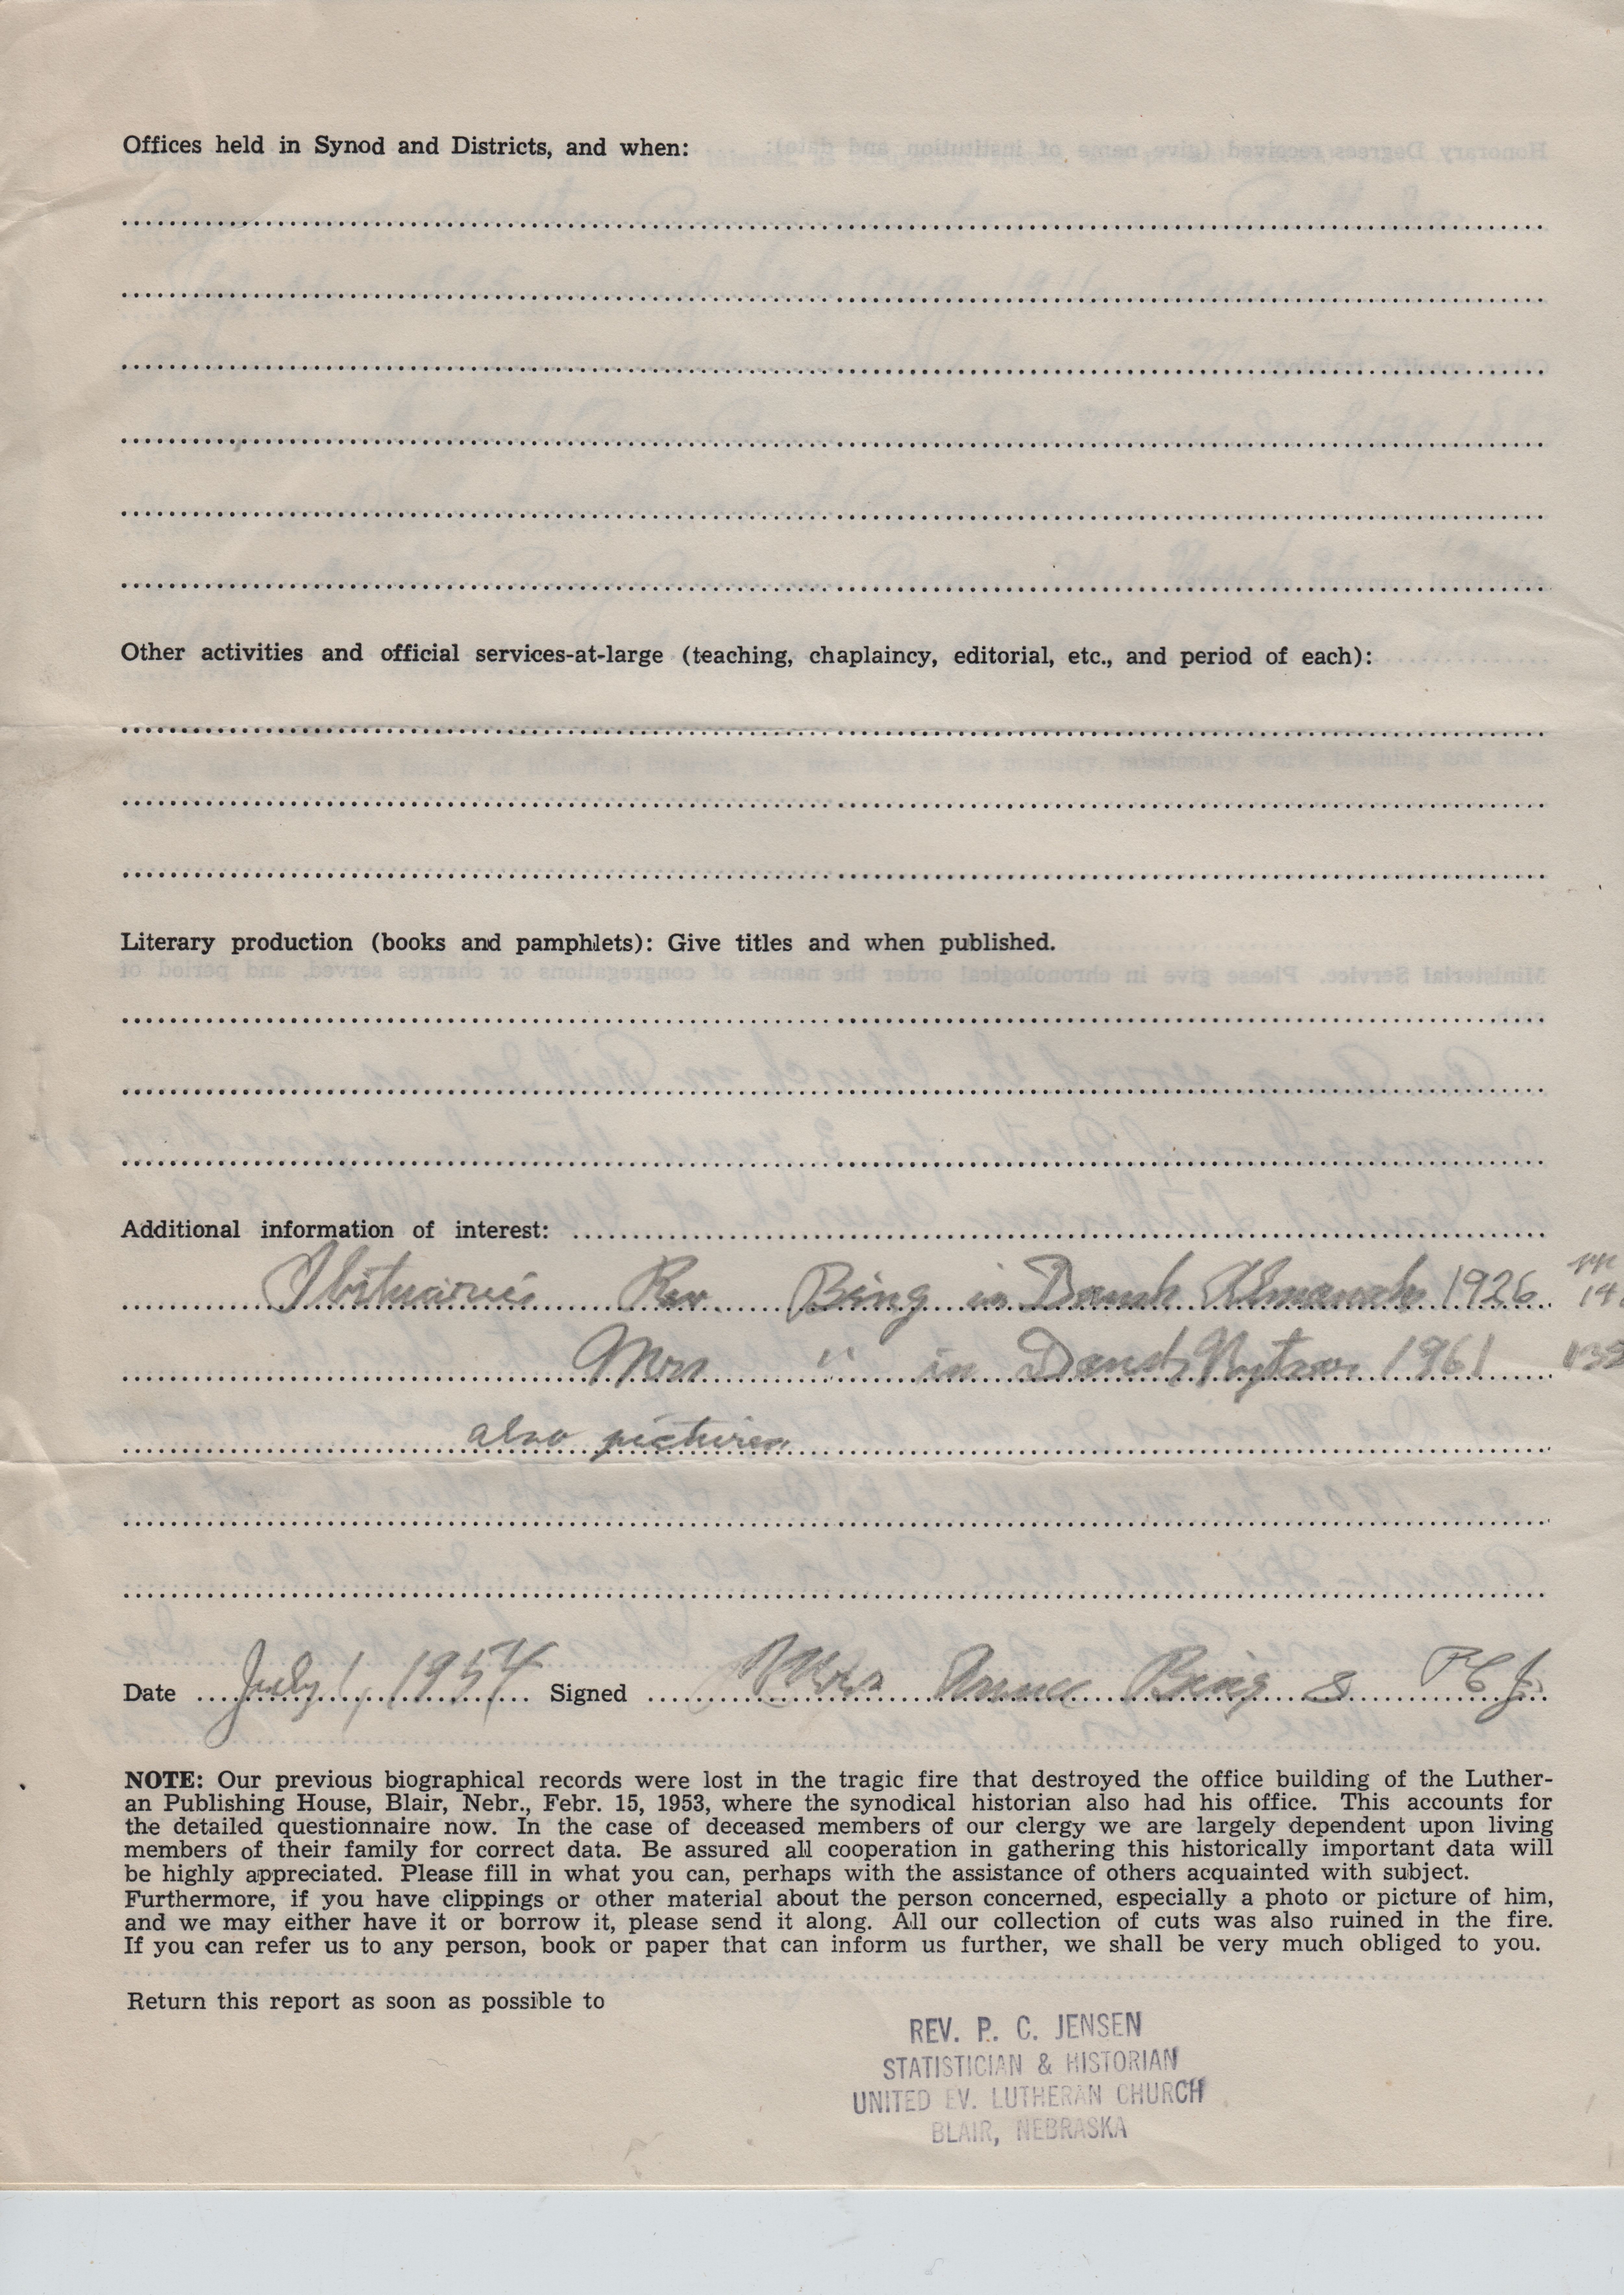 Offices held in Synod and Districts, and when:
Other activities and official services-at-large (teaching, chaplaincy, editorial, etc., and period of each):
Literary production (books and pamphlets): Give titles and when published.
Additional information of interest:
Obituaries Rev. Bing in Dansk Almanak 1926 pp 14
Mrs " in Dansk Nytaar 1961 138
also pictures
Date July 1, 1954 Signed Mrs Anna Bing & P C J.
NOTE: Our previous biographical records were lost in the tragic fire that destroyed the office building of the Luther-
an Publishing House, Blair, Nebr., Febr. 15, 1953, where the synodical historian also had his office. This accounts for
the detailed questionnaire now. In the case of deceased members of our clergy we are largely dependent upon living
members of their family for correct data. Be assured all cooperation in gathering this historically important data will
be highly appreciated. Please fill in what you can, perhaps with the assistance of others acquainted with subject.
Furthermore, if you have clippings or other material about the person concerned, especially a photo or picture of him,
and we may either have it or borrow it, please send it along. All our collection of cuts was also ruined in the fire.
If you can refer us to any person, book or paper that can inform us further, we shall be very much obliged to you.
Return this report as soon as possible to
REV. P. C. JENSEN
STATISTICIAN & HISTORIAN
UNITED EV. LUTHERAN CHURCH
BLAIR, NEBRASKA